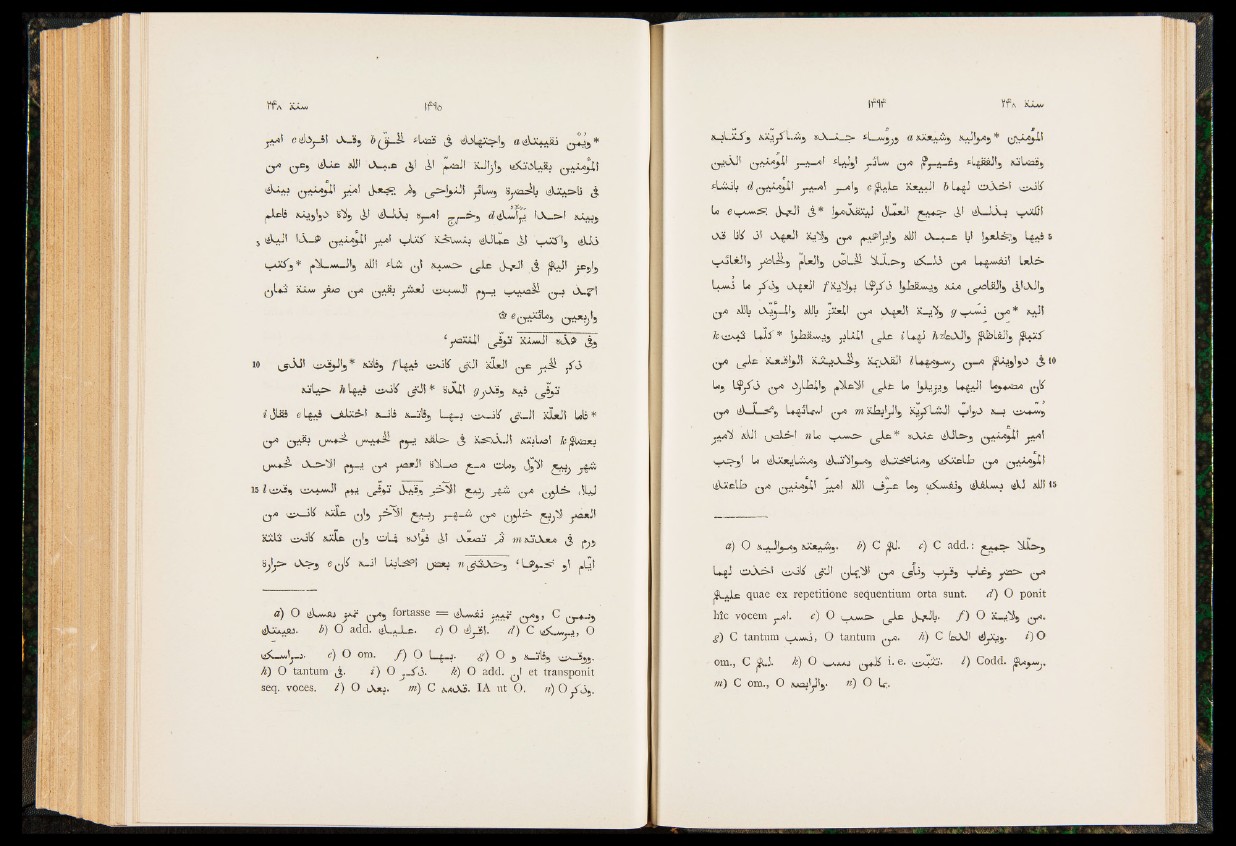 سنة ٢٤٨ ١٤٩٤
المؤمنين *ومواليه وشيعته a ورؤساء جنده وشاكريّته وكتّابه
وقضاته والفقهاء وغيرهم من سائر اولياء امير المؤمنين الذين
كانت اخذت لهما b البيعة عليهم c وامر امير المؤمنين d بانشاء
الكتب بذلك الى جميع العمّال ليتقدّموا *فى العمل بحسب e ما
5 فيها ويخلعوا ابا عبد الله وابراهيم من ولاية العهد اذ كانا قد
خلعا انفسهما من ذلك وحلّلا الخاصّ والعامّ والحاضر والغائب
والدانى والقاصى منه ويسقطوا ذكرهما بولاية f العهد وذكر ما نُسبا
اليه *من نَسَب g ولاية العهد من المعتزّ بالله والمؤيّد بالله من
كتبهم والفاظهم والدعاء h لهما i على المنابر ويسقطوا *كلّما ثبت k
10 فى دواوينهم من رسومهما l القديمة والحديثة الواقعة على من
كان مضموما اليهما ويزيلوا ما على الاعلام والمطارد من ذكرهما وما
وُسمت به دوابّ الشاكريّة والرابطة m من اسمائهما ومحلّك من
امير المؤمنين وحالك عنده *على حسب ما n اخلص الله لامير
المؤمنين من طاعتك ومناصحتك وموالاتك ومشايعتك ما اوجب
15 الله لك بسلفك ونفسك وما عرّف الله امير المؤمنين من طاعتك
a) O ومواليه وشيعته. b) C لهم. c) C add.: وحلّلا جميع
من حضر وغاب وقرب ونأى من الايمان التى كانت اخذت لهما
عليهم quae ex repetitione sequentium orta sunt. d) O ponit
hîc vocem امر. e) O بالعمل على حسب. f) O من ولاية.
g) C tantum نسب, O tantum من. h) C ويترك الدعا. i) O
om., C لهم. k) O كلمن ىىىب i. e. تثبّت. l) Codd. رسومهم.
m) C om., O والرابصه. n) O بما.
سنة ٢٤٨ ١٤٩٥
*ويُمن نقيبتك a واجتهادك فى قضاء الحقّ b وقد افردك c امير
المؤمنين بقيادتك وازالة الضمّ الى ابى عبد الله عنك وعن من
فى ناحيتك بالحضرة وسائر النواحى ولم يجعل امير المؤمنين بينك
وبينه احدا يرأسك d وخرج امره بذلك الى ولاة دواوينه فاعلم
5 ذلك واكتب الى عمّالك بنسخة كتاب امير المؤمنين هذا اليك
واوعز اليهم فى العمل على حسبه ان شاء الله والسلام *وكتب
احمد بن الخصيب يوم السبت لعشر بقين من صفر سنة ثمان
واربعين ومائتين e ۞
وفى هذه السنة توفّى المنتصر،
10 ذكر الخبر عن العلّة التى كانت فيها f وفاته *والوقت الذى
توفّى فيه وقدر g المدّة *التى كانت فيها h حياته
*فاما العلّة التى كانت بها وفاته فانه اختلف فيها e فقال i
بعضهم k اصابته الذبحة فى حلقه يوم الخميس لخمس بقين من
شهر ربيع الأوّل ومات مع صلاة العصر من يوم الاحد لخمس
15 ليال خلون من شهر ربيع الآخر وقيل توفّى يوم السبت وقت l
العصر لاربع خلون من شهر ربيع الآخر وان علّته كانت من
ورم فى معدته m ثم تصعّد الى فؤاده فمات وان علّته كانت ثلثة
ايام او نحوها، وحدّثنى n بعض اصحابنا انه كان e وجد حرارة
a) O ومن تميز نفسك fortasse = ومن تمييز نفسك, C ويمن
نفيىتك. b) O add. عليك. c) O اقرك. d) C يرسمك, O
براسك. e) O om. f) O بها. g) O ووقت وفاته و.
h) O tantum فى. i) O ذكر. k) O add. ان et transponit
seq. voces. l) O بعد. m) C مقعدته. IA ut O. n) O وذكر.